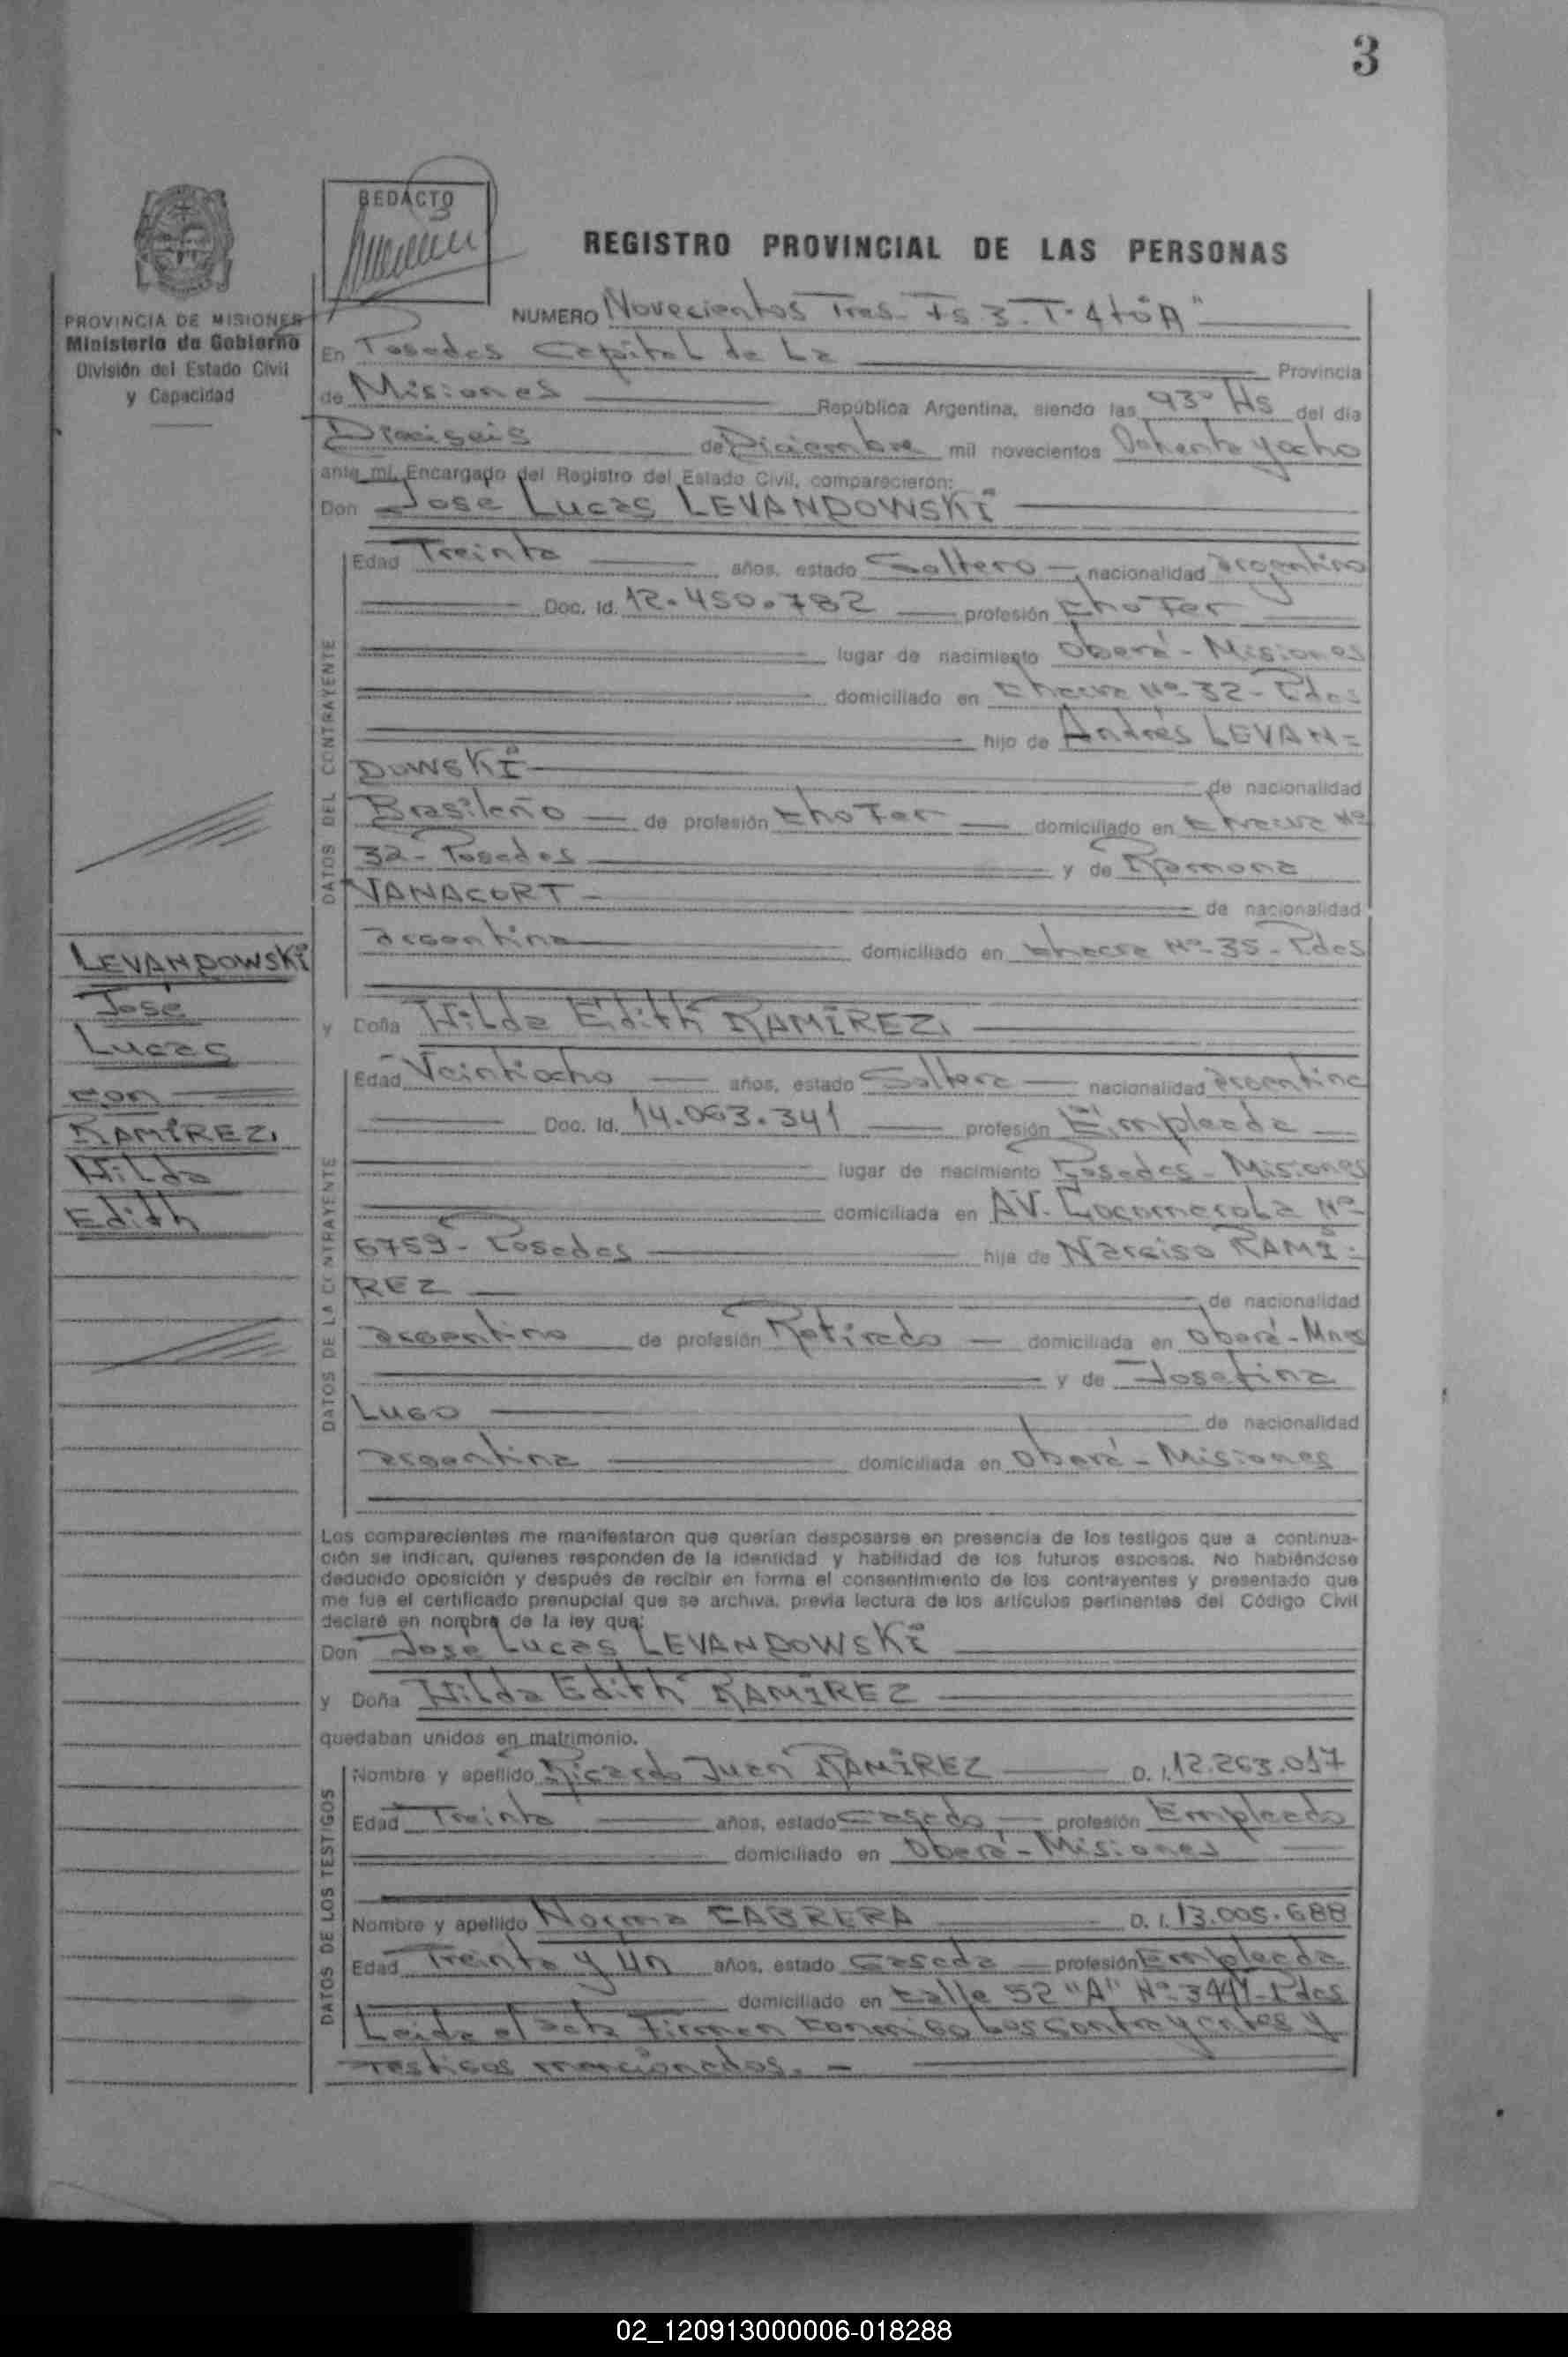 3
REDACTO
REGISTRO PROVINCIAL DE LAS PERSONAS
PROVINCIA DE MISIONES
Ministerio de Gobierno
División del Estado Civil
y Capacidad
NUMERO Novecientos Tres - Fs 3. T-4to "A"
En Posadas Capital de La Provincia
de Misiones República Argentina, siendo las 930 Hs del día
Dieciseis de Diciembre mil novecientos Ochenta y ocho
ante mí, Encargado del Registro del Estado Civil, comparecieron:
Don Jose Lucas LEVANDOWSKI
DATOS DEL CONTRAYENTE
Edad Treinta años, estado Soltero nacionalidad argentino
Doc. Id. 12.450.782 profesión Chofer
lugar de nacimiento Oberá - Misiones
domiciliado en Chacra Nº 32 - Pdas
hijo de Andrés LEVAN=
DOWSKI de nacionalidad
Brasileño de profesión Chofer domiciliado en Chacra Nº
32 - Posadas y de Ramona
VANACORT - de nacionalidad
argentina domiciliado en Chacra Nº 35 - Pdas
LEVANDOWSKI
José
Lucas
con
RAMIREZ,
Hilda
Edith
y Doña Hilda Edith RAMIREZ,
DATOS DE LA CONTRAYENTE
Edad Veintiocho años, estado Soltera nacionalidad argentina
Doc. Id. 14.063.341 profesión Empleada
lugar de nacimiento Posadas - Misiones
domiciliada en AV. Cocomerola Nº
6759 - Posadas hija de Narciso RAMI=
REZ de nacionalidad
argentino de profesión Retirado domiciliada en Oberá - Mnes
y de Josefina
LUGO de nacionalidad
argentina domiciliada en Oberá - Misiones
Los comparecientes me manifestaron que querían desposarse en presencia de los testigos que a continua-
ción se indican, quienes responden de la identidad y habilidad de los futuros esposos. No habiéndose
deducido oposición y después de recibir en forma el consentimiento de los contrayentes y presentado que
me fue el certificado prenupcial que se archiva, previa lectura de los artículos pertinentes del Código Civil
declaré en nombre de la ley que:
Don Jose Lucas LEVANDOWSKI
y Doña Hilda Edith RAMIREZ
quedaban unidos en matrimonio.
DATOS DE LOS TESTIGOS
Nombre y apellido Ricardo Juan RAMIREZ D. I. 12.263.017
Edad Treinta años, estado Casado profesión Empleado
domiciliado en Oberá - Misiones
Nombre y apellido Norma CABRERA D. I. 13.005.688
Edad Treinta y un años, estado Casada profesión Empleada
domiciliado en Calle 52 "A" Nº 3441 - Pdas
Leida el acta Firman conmigo los contrayentes y
testigos mencionados. -
02_120913000006-018288